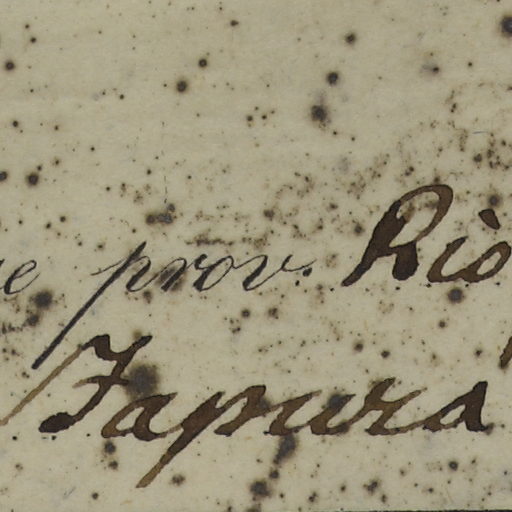 prov. Rio
Japura